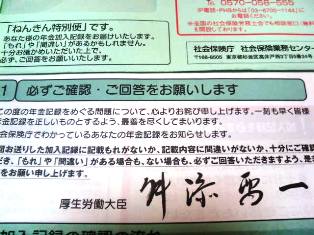 「ねんきん特別便」です。
あなた様の年金加入記録をお届けいたします。
「もれ」や「間違い」があるかもしれません。
十分お確かめいただいた上で、
必ず、ご回答いただきますよう
0570-058-555
IP電話・PHSからは「03-6700-1144」に
お電話ください。
社会保険庁 社会保険業務センター
〒168-8505 東京都杉並区高井戸西3丁目5番24号
1 必ずご確認・ご回答をお願いします
この度の年金記録をめぐる問題について、心よりお詫び申し上げます。一刻も早く皆様
年金記録を正しいものとするよう、最善を尽くしてまいります。
会保険庁でわかっているあなたの年金記録をお知らせします。
回お送りした加入記録に記載もれがないか、記載内容に間違いがないか、十分にご確認
だき、「もれ」や「間違い」がある場合も、ない場合も、必ずご回答いただきますよう、
をお願い申し上げます。
厚生労働大臣 舛添要一
加入記録の確認の